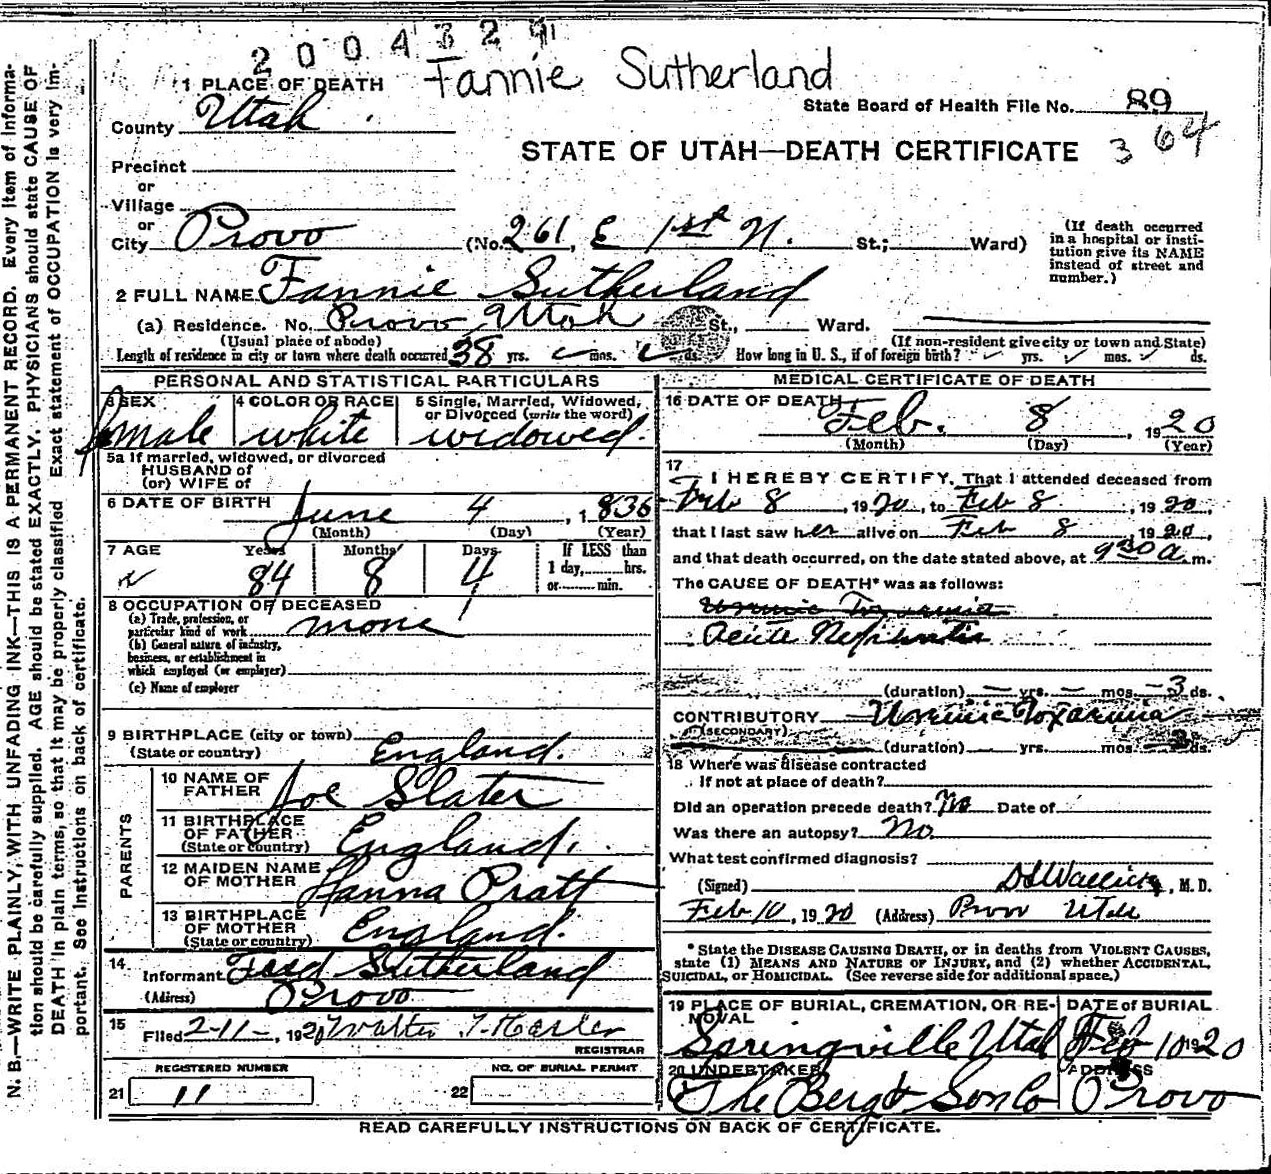 2004329
Fannie Sutherland
1 PLACE OF DEATH
State Board of Health File No. 89
County Utah
364
STATE OF UTAH—DEATH CERTIFICATE
Precinct
or
Village
or
City Provo (No. 261, E 1st N. St.; Ward)
(If death occurred in a hospital or institution give its NAME instead of street and number.)
2 FULL NAME Fannie Sutherland
(a) Residence. No. Provo Utah St., Ward.
(Usual place of abode) (If non-resident give city or town and State)
Length of residence in city or town where death occurred 38 yrs. mos. ds. How long in U. S., if of foreign birth? yrs. mos. ds.
PERSONAL AND STATISTICAL PARTICULARS
3 SEX 4 COLOR OR RACE 5 Single, Married, Widowed, or Divorced (write the word)
female white widowed.
5a If married, widowed, or divorced
HUSBAND of
(or) WIFE of
6 DATE OF BIRTH June 4, 1836
(Month) (Day) (Year)
7 AGE Years Months Days If LESS than
84 8 4 1 day, hrs.
or min.
8 OCCUPATION OF DECEASED
(a) Trade, profession, or
particular kind of work none
(b) General nature of industry,
business, or establishment in
which employed (or employer)
(c) Name of employer
9 BIRTHPLACE (city or town)
(State or country) England.
PARENTS
10 NAME OF FATHER Joe Slater
11 BIRTHPLACE OF FATHER (State or country) England.
12 MAIDEN NAME OF MOTHER Hanna Pratt
13 BIRTHPLACE OF MOTHER (State or country) England.
14
Informant Fred Sutherland
(Address) Provo
15 Filed 2-11-, 1920 Walter T. Hasler
REGISTRAR
REGISTERED NUMBER NO. OF BURIAL PERMIT
21 11 22
MEDICAL CERTIFICATE OF DEATH
16 DATE OF DEATH
Feb. 8, 1920
(Month) (Day) (Year)
17
I HEREBY CERTIFY, That I attended deceased from
Feb 8, 1920, to Feb 8, 1920,
that I last saw her alive on Feb 8 1920,
and that death occurred, on the date stated above, at 9 30 a. m.
The CAUSE OF DEATH* was as follows:
Uremic Toxaemia
Acute Nephritis
(duration) — yrs. — mos. 3 ds.
CONTRIBUTORY Uremic Toxaemia
(SECONDARY)
(duration) yrs. mos. 3 ds.
18 Where was disease contracted
If not at place of death?
Did an operation precede death? No Date of
Was there an autopsy? No
What test confirmed diagnosis?
(Signed) , M. D.
Feb 10, 1920 (Address) Provo Utah
*State the DISEASE CAUSING DEATH, or in deaths from VIOLENT CAUSES,
state (1) MEANS AND NATURE OF INJURY, and (2) whether ACCIDENTAL,
SUICIDAL, or HOMICIDAL. (See reverse side for additional space.)
19 PLACE OF BURIAL, CREMATION, OR REMOVAL DATE of BURIAL
Springville Utah Feb 10 1920
20 UNDERTAKER ADDRESS
The Berg & Son Co Provo
READ CAREFULLY INSTRUCTIONS ON BACK OF CERTIFICATE.
N. B.—WRITE PLAINLY, WITH UNFADING INK—THIS IS A PERMANENT RECORD. Every item of Informa-
tion should be carefully supplied. AGE should be stated EXACTLY. PHYSICIANS should state CAUSE OF
DEATH in plain terms, so that it may be properly classified. Exact statement of OCCUPATION is very im-
portant. See instructions on back of certificate.